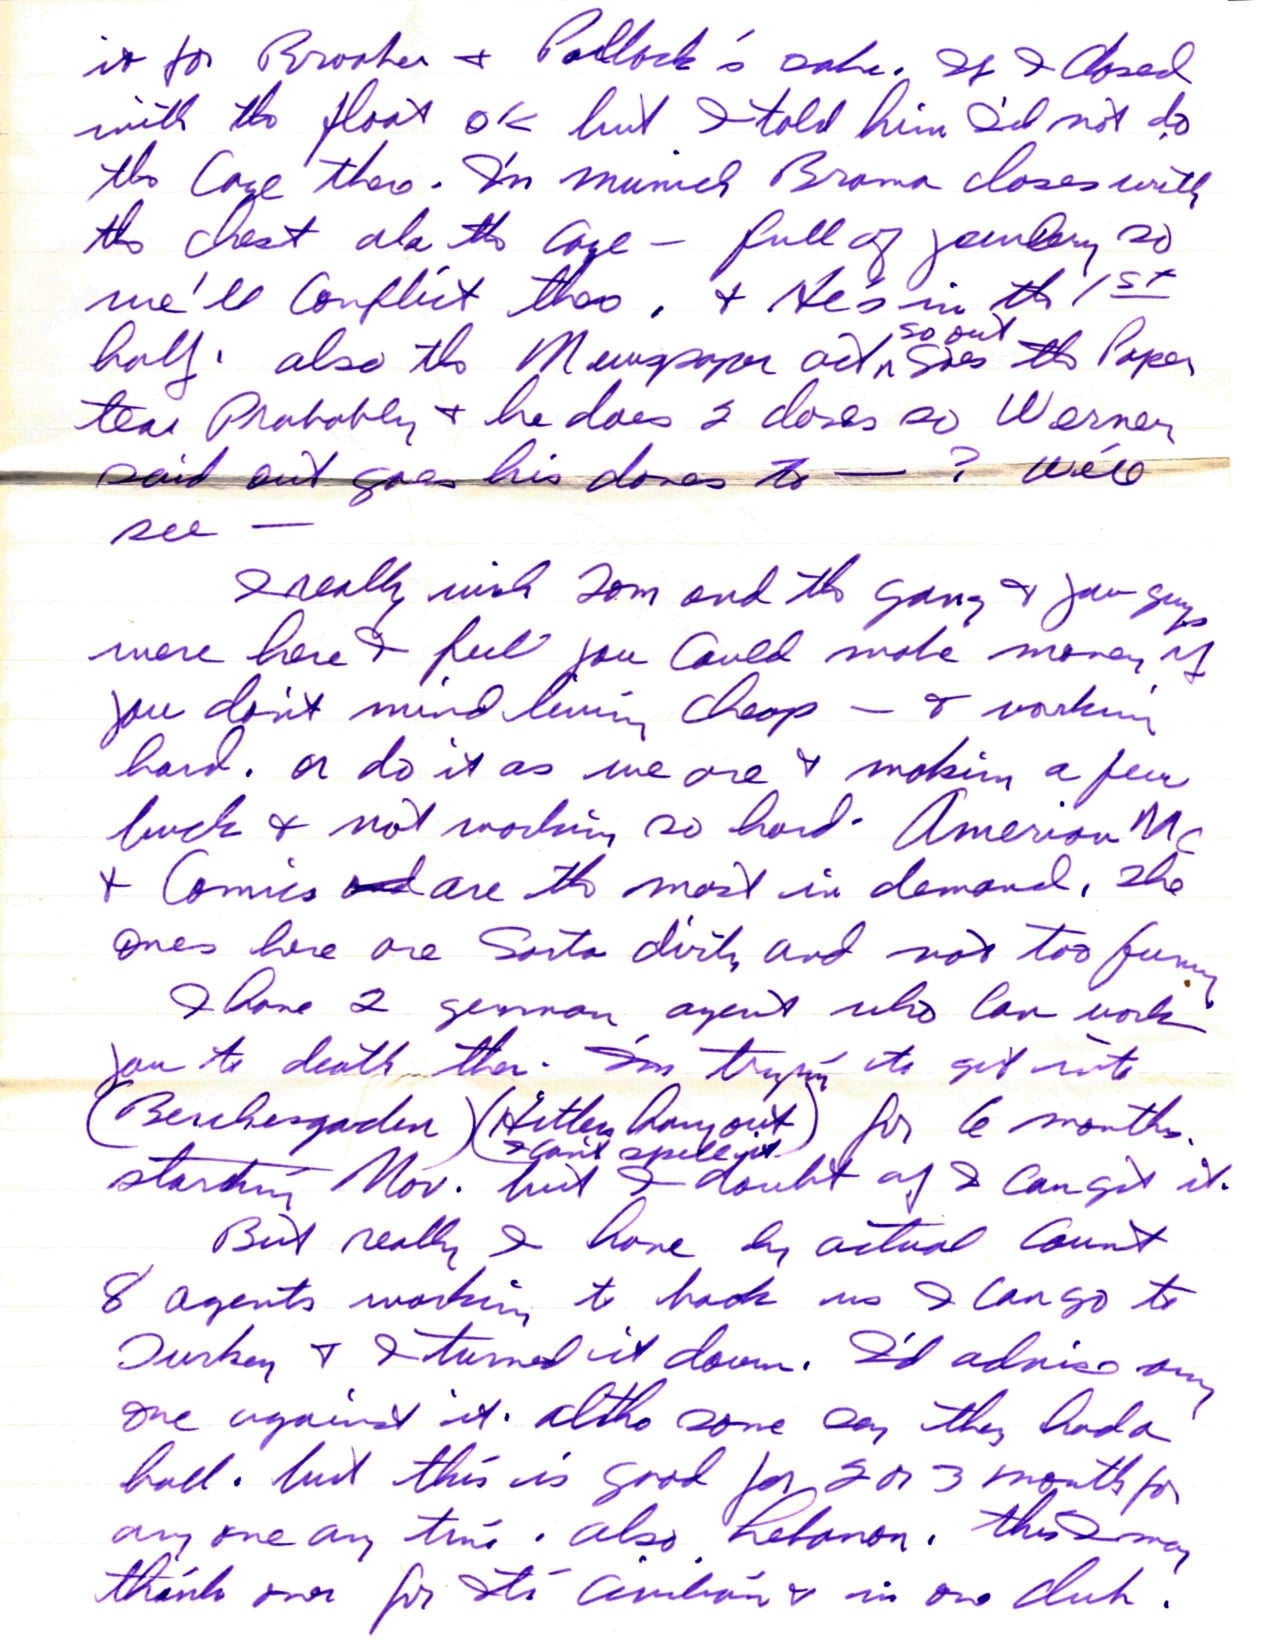 it for Brooker + Pollock's sake. If I closed
with the float OK but I told him I'd not do
the Cage tho. In Munich Brama closes with
the chest ala the cage — full of so
we'll conflict tho. + He's in the 1st
half. also the Newspaper act so out goes the Paper
tear Probably + he does 2 doves so Werner
said out goes his doves to — ? We'll
see —
I really wish Tom and the gang + you guys
were here I feel you could make money if
you don't mind living cheap — + working
hard. or do it as we are + making a few
buck + not working so hard. American Mc
+ Comics are the most in demand. The
ones here are Sorta dirty and not too funny
I have 2 german agent who can work
you to death ther. I'm trying to get into
(Berchesgaden) (Hitlers hangout) for 6 months.
I can't spell it
starting Nov. but I doubt if I can get it.
But really I have by actual count
8 agents working to book us I can go to
Turkey + I turned it down. I'd advise any
one against it. altho some say they had a
ball. but this is good for 2 or 3 month for
any one any time. also Lebanon. this I may
think over for its civilian + in one club.